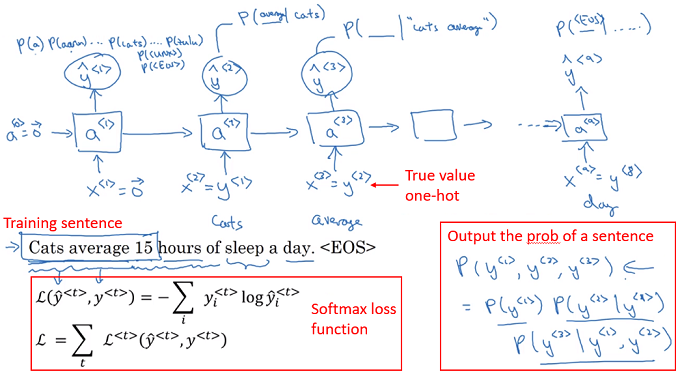 P(a) P(aaron) ... P(cats) .... P(zulu)
P(<UNK>)
P(<EOS>)
P(average | cats)
P( __ | "cats average")
P(<EOS> | ......)
ŷ<1> ŷ<2> ŷ<3> ŷ<9>
a<0> = 0⃗ → a<1> → a<2> → a<3> → → ...... a<9>
x<1> = 0⃗ x<2> = y<1> x<3> = y<2> x<9> = y<8>
True value
one-hot
Cats average day
Training sentence
→ Cats average 15 hours of sleep a day. <EOS>
ℒ(ŷ<t>, y<t>) = − ∑ᵢ yᵢ<t> log ŷᵢ<t>
ℒ = ∑ₜ ℒ<t>(ŷ<t>, y<t>)
Softmax loss
function
Output the prob of a sentence
P(y<1>, y<2>, y<3>) ←
= P(y<1>) P(y<2> | y<1>)
P(y<3> | y<1>, y<2>)